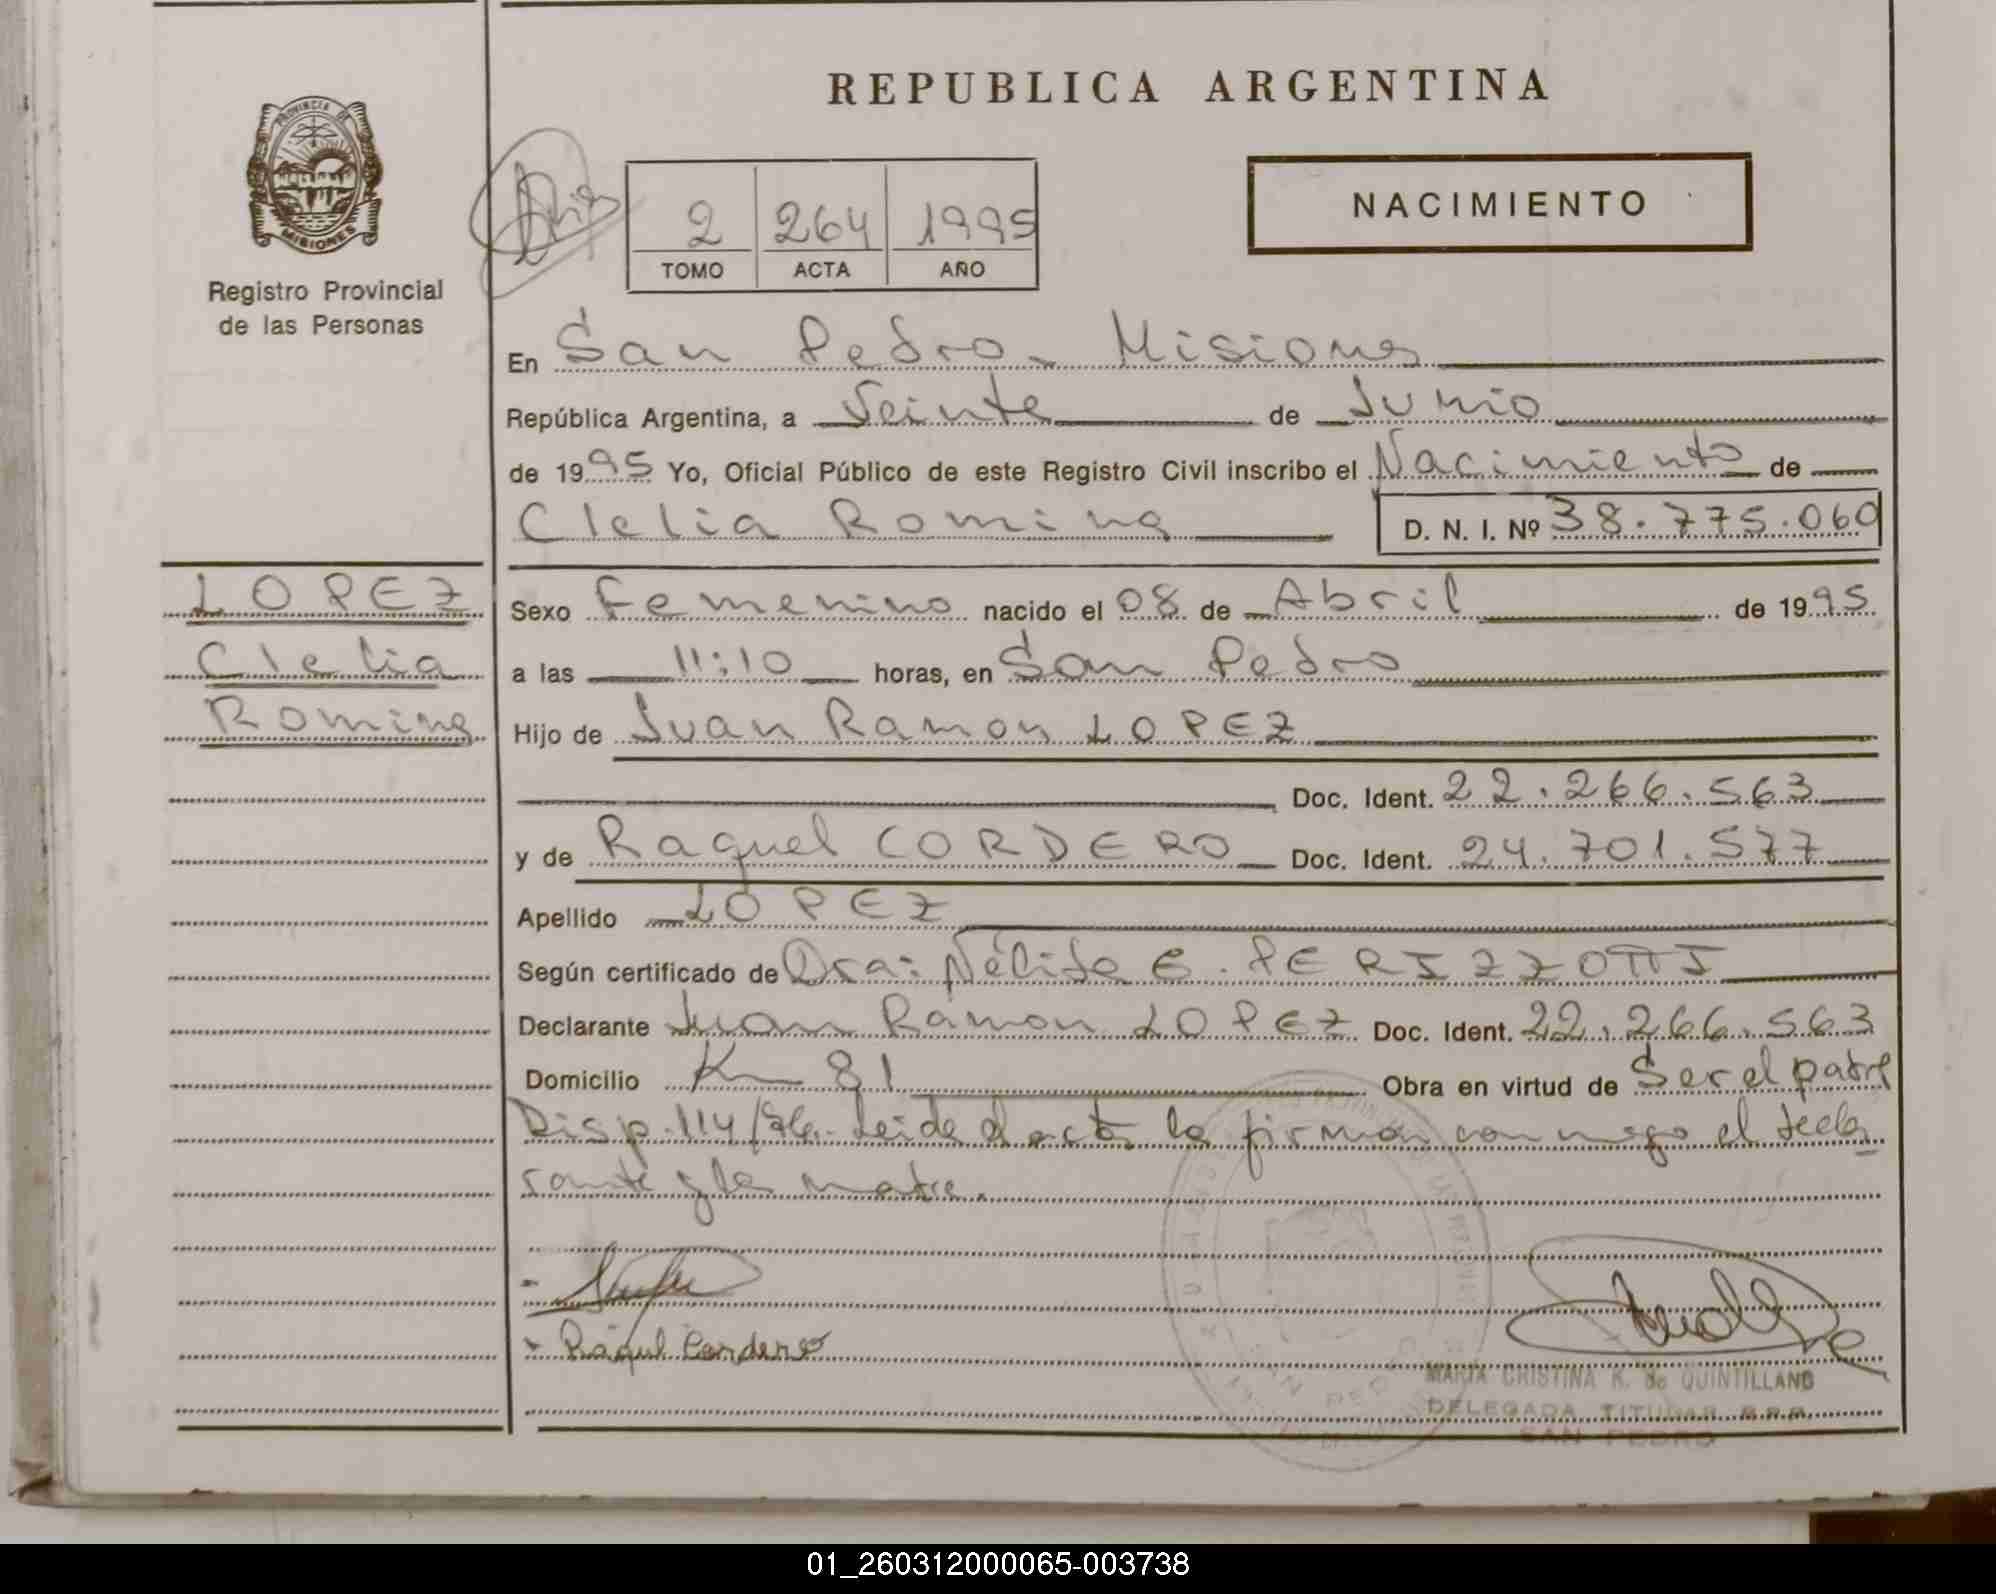 REPUBLICA ARGENTINA
PROVINCIA DE
MISIONES
Registro Provincial
de las Personas
2 264 1995
TOMO ACTA AÑO
NACIMIENTO
En San Pedro - Misiones
República Argentina, a Veinte de Junio
de 1995 Yo, Oficial Público de este Registro Civil inscribo el Nacimiento de
Clelia Romina D. N. I. Nº 38.775.060
LOPEZ
Clelia
Romina
Sexo Femenino nacido el 08 de Abril de 1995
a las 11:10 horas, en San Pedro
Hijo de Juan Ramon LOPEZ
Doc. Ident. 22.266.563
y de Raquel CORDERO Doc. Ident. 24.701.577
Apellido LOPEZ
Según certificado de Dra: Nélida E. PERIZZOTTI
Declarante Juan Ramon LOPEZ Doc. Ident. 22.266.563
Domicilio Km 81 Obra en virtud de Ser el padre
Disp. 114/86. Leida el acta la firman con migo el decla
rante y la madre.
- Raquel Cordero
MARIA CRISTINA K. de QUINTILLANO
DELEGADA TITULAR R.R.P.
SAN PEDRO
01_260312000065-003738